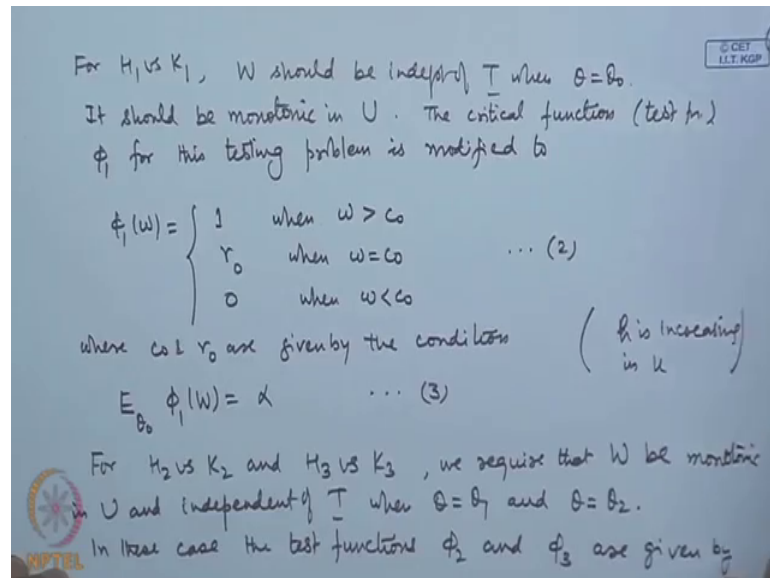 © CET
I.I.T. KGP
For H₁ vs K₁, W should be indept of T when θ = θ₀.
It should be monotonic in U. The critical function (test fn.)
ϕ₁ for this testing problem is modified to
ϕ₁(w) = { 1 when w > c₀
r₀ when w = c₀ ... (2)
0 when w < c₀
where c₀ & r₀ are given by the conditions (h is increasing
in u)
E_θ₀ ϕ₁(W) = α ... (3)
For H₂ vs K₂ and H₃ vs K₃, we require that W be monotonic
in U and independent of T when θ = θ₁ and θ = θ₂.
In these case the test functions ϕ₂ and ϕ₃ are given by
NPTEL